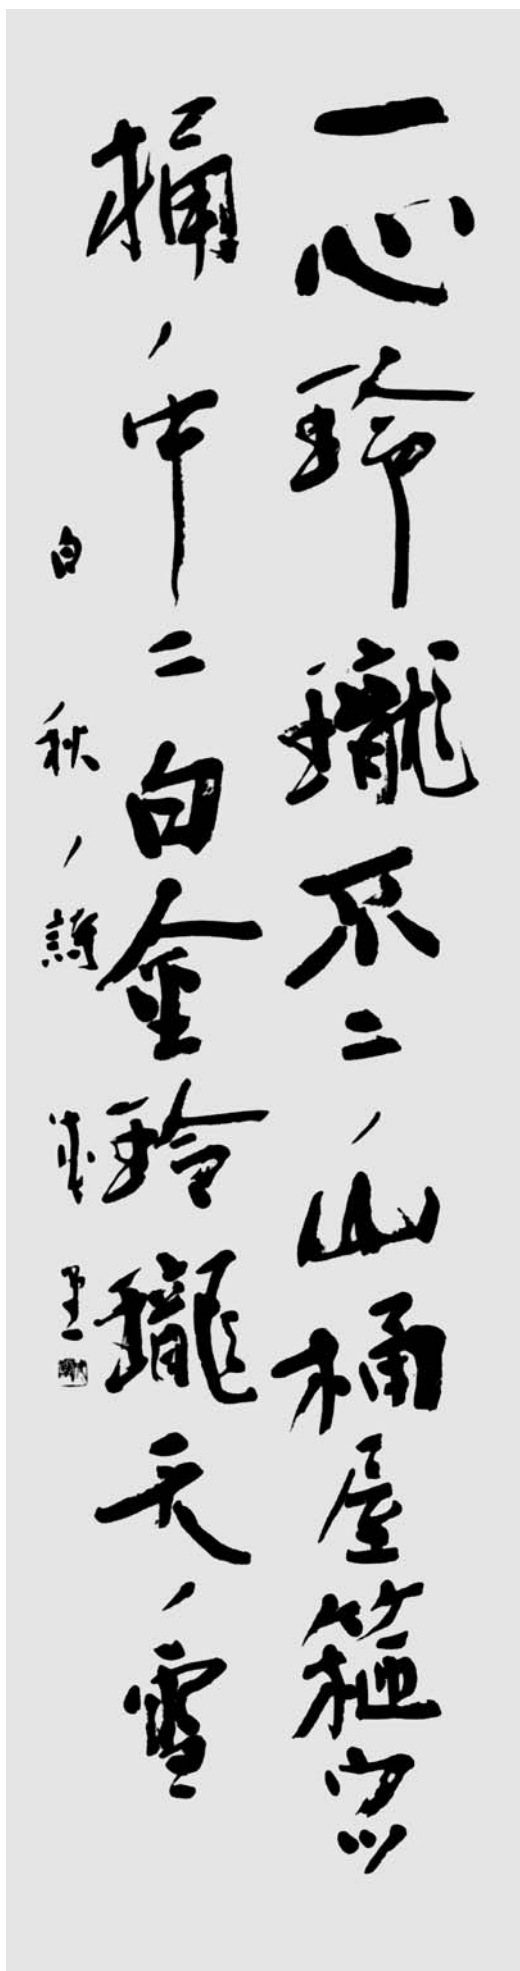 一心玲瓏不二ノ山桶屋箍ウツ
桶ノ中ニ白金玲瓏天ノ雪
白秋ノ詩